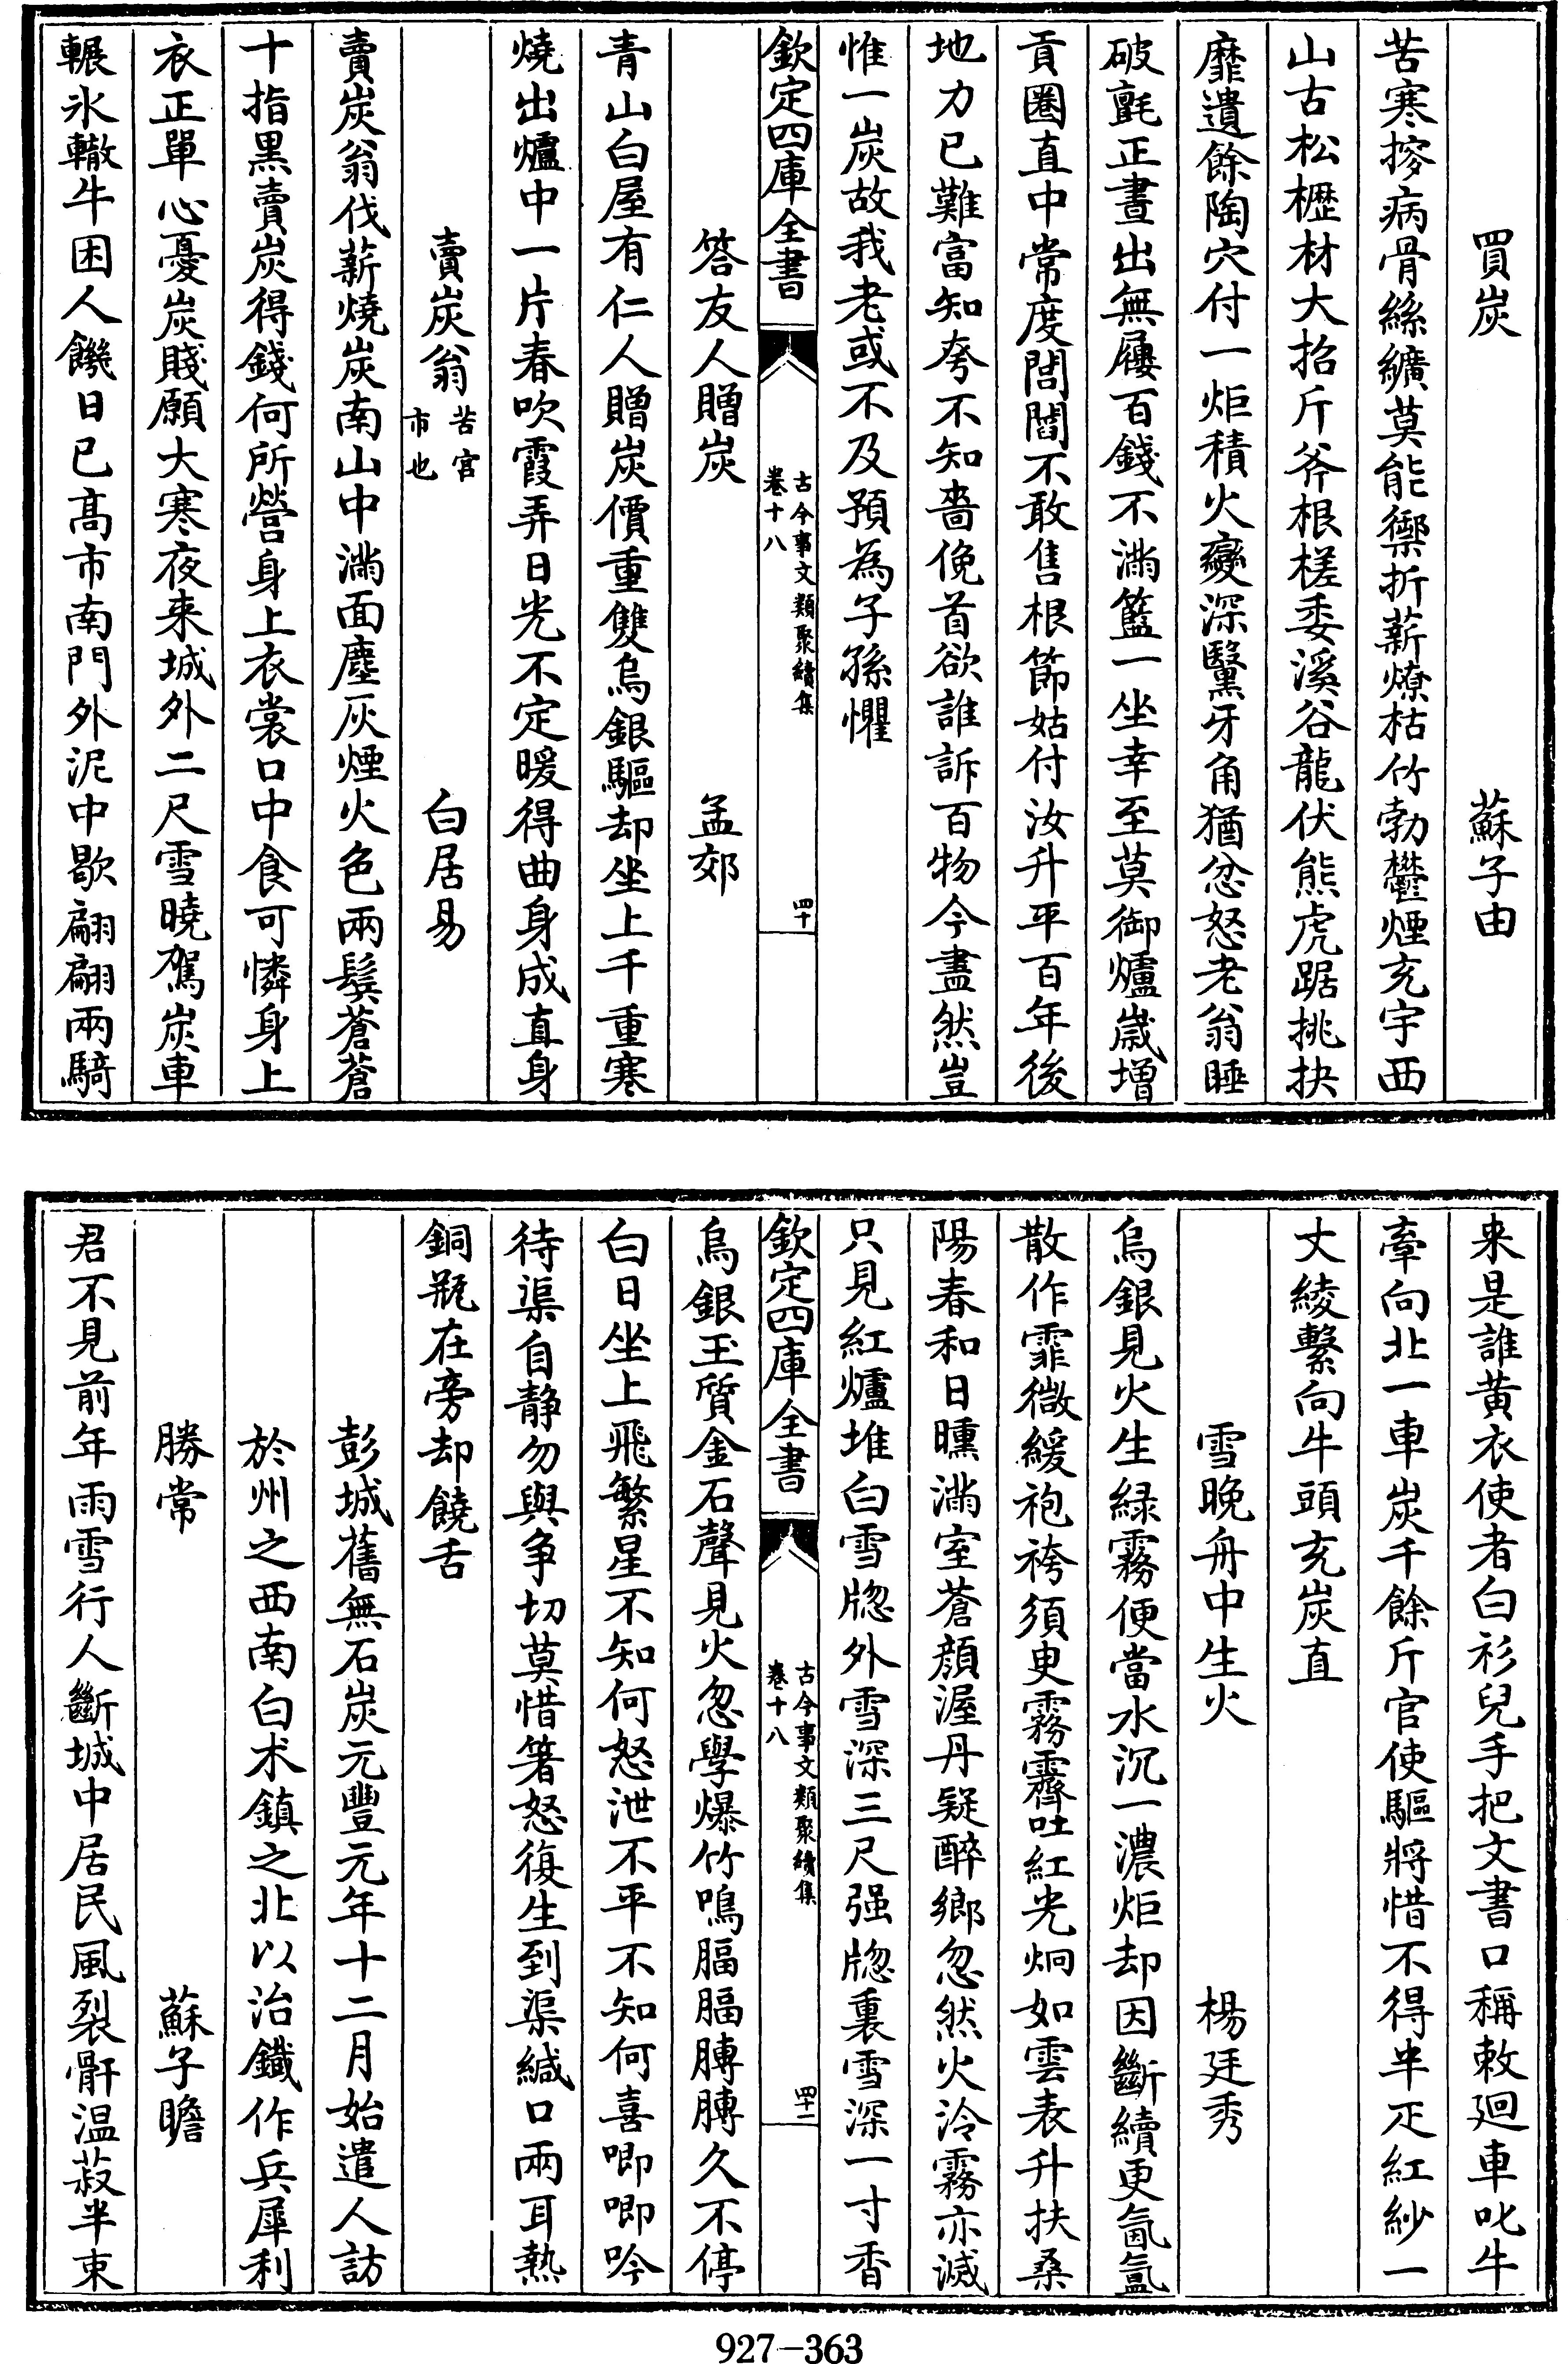 買炭　蘇子由
苦寒摎病骨絲纊莫能禦折薪燎枯竹勃鬱煙充宇西
山古松櫪材大招斤斧根槎委溪谷龍伏熊虎踞挑抉
靡遺餘陶穴付一炬積火變深黳牙角猶忿怒老翁睡
破氈正晝出無屨百錢不滿籃一坐幸至莫御爐歲增
貢圈直中常度閭閻不敢售根節姑付汝升平百年後
地力已難富知夸不知嗇俛首欲誰訴百物今盡然豈
惟一炭故我老或不及預為子孫懼
欽定四庫全書　古今事文類聚續集卷十八　四十
答友人贈炭　孟郊
青山白屋有仁人贈炭價重雙烏銀驅却坐上千重寒
燒出爐中一片春吹霞弄日光不定暖得曲身成直身
賣炭翁苦宮市也　白居易
賣炭翁伐薪燒炭南山中滿面塵灰煙火色兩鬢蒼蒼
十指黑賣炭得錢何所營身上衣裳口中食可憐身上
衣正單心憂炭賤願大寒夜来城外二尺雪曉駕炭車
輾氷轍牛困人饑日已高市南門外泥中歇翩翩兩騎
来是誰黃衣使者白衫兒手把文書口稱敕廻車叱牛
牽向北一車炭千餘斤官使驅將惜不得半疋紅紗一
丈綾繫向牛頭充炭直
雪晚舟中生火　楊廷秀
烏銀見火生緑霧便當水沉一濃炬却因斷續更氤氲
散作霏微緩袍袴須臾霧霽吐紅光炯如雲表升扶桑
陽春和日曛滿室蒼顔渥丹疑醉鄉忽然火泠霧亦滅
只見紅爐堆白雪牕外雪深三尺强牕裏雪深一寸香
欽定四庫全書　古今事文類聚續集卷十八　四十一
烏銀玉質金石聲見火忽學爆竹鳴腷腷膊膊久不停
白日坐上飛繁星不知何怒泄不平不知何喜唧唧吟
待渠自静勿與争切莫惜箸怒復生到渠緘口兩耳熱
銅瓶在旁却饒舌
彭城舊無石炭元豐元年十二月始遣人訪
於州之西南白术鎮之北以治鐵作兵犀利
勝常　蘇子瞻
君不見前年雨雪行人斷城中居民風裂骭温菽半束
927-363